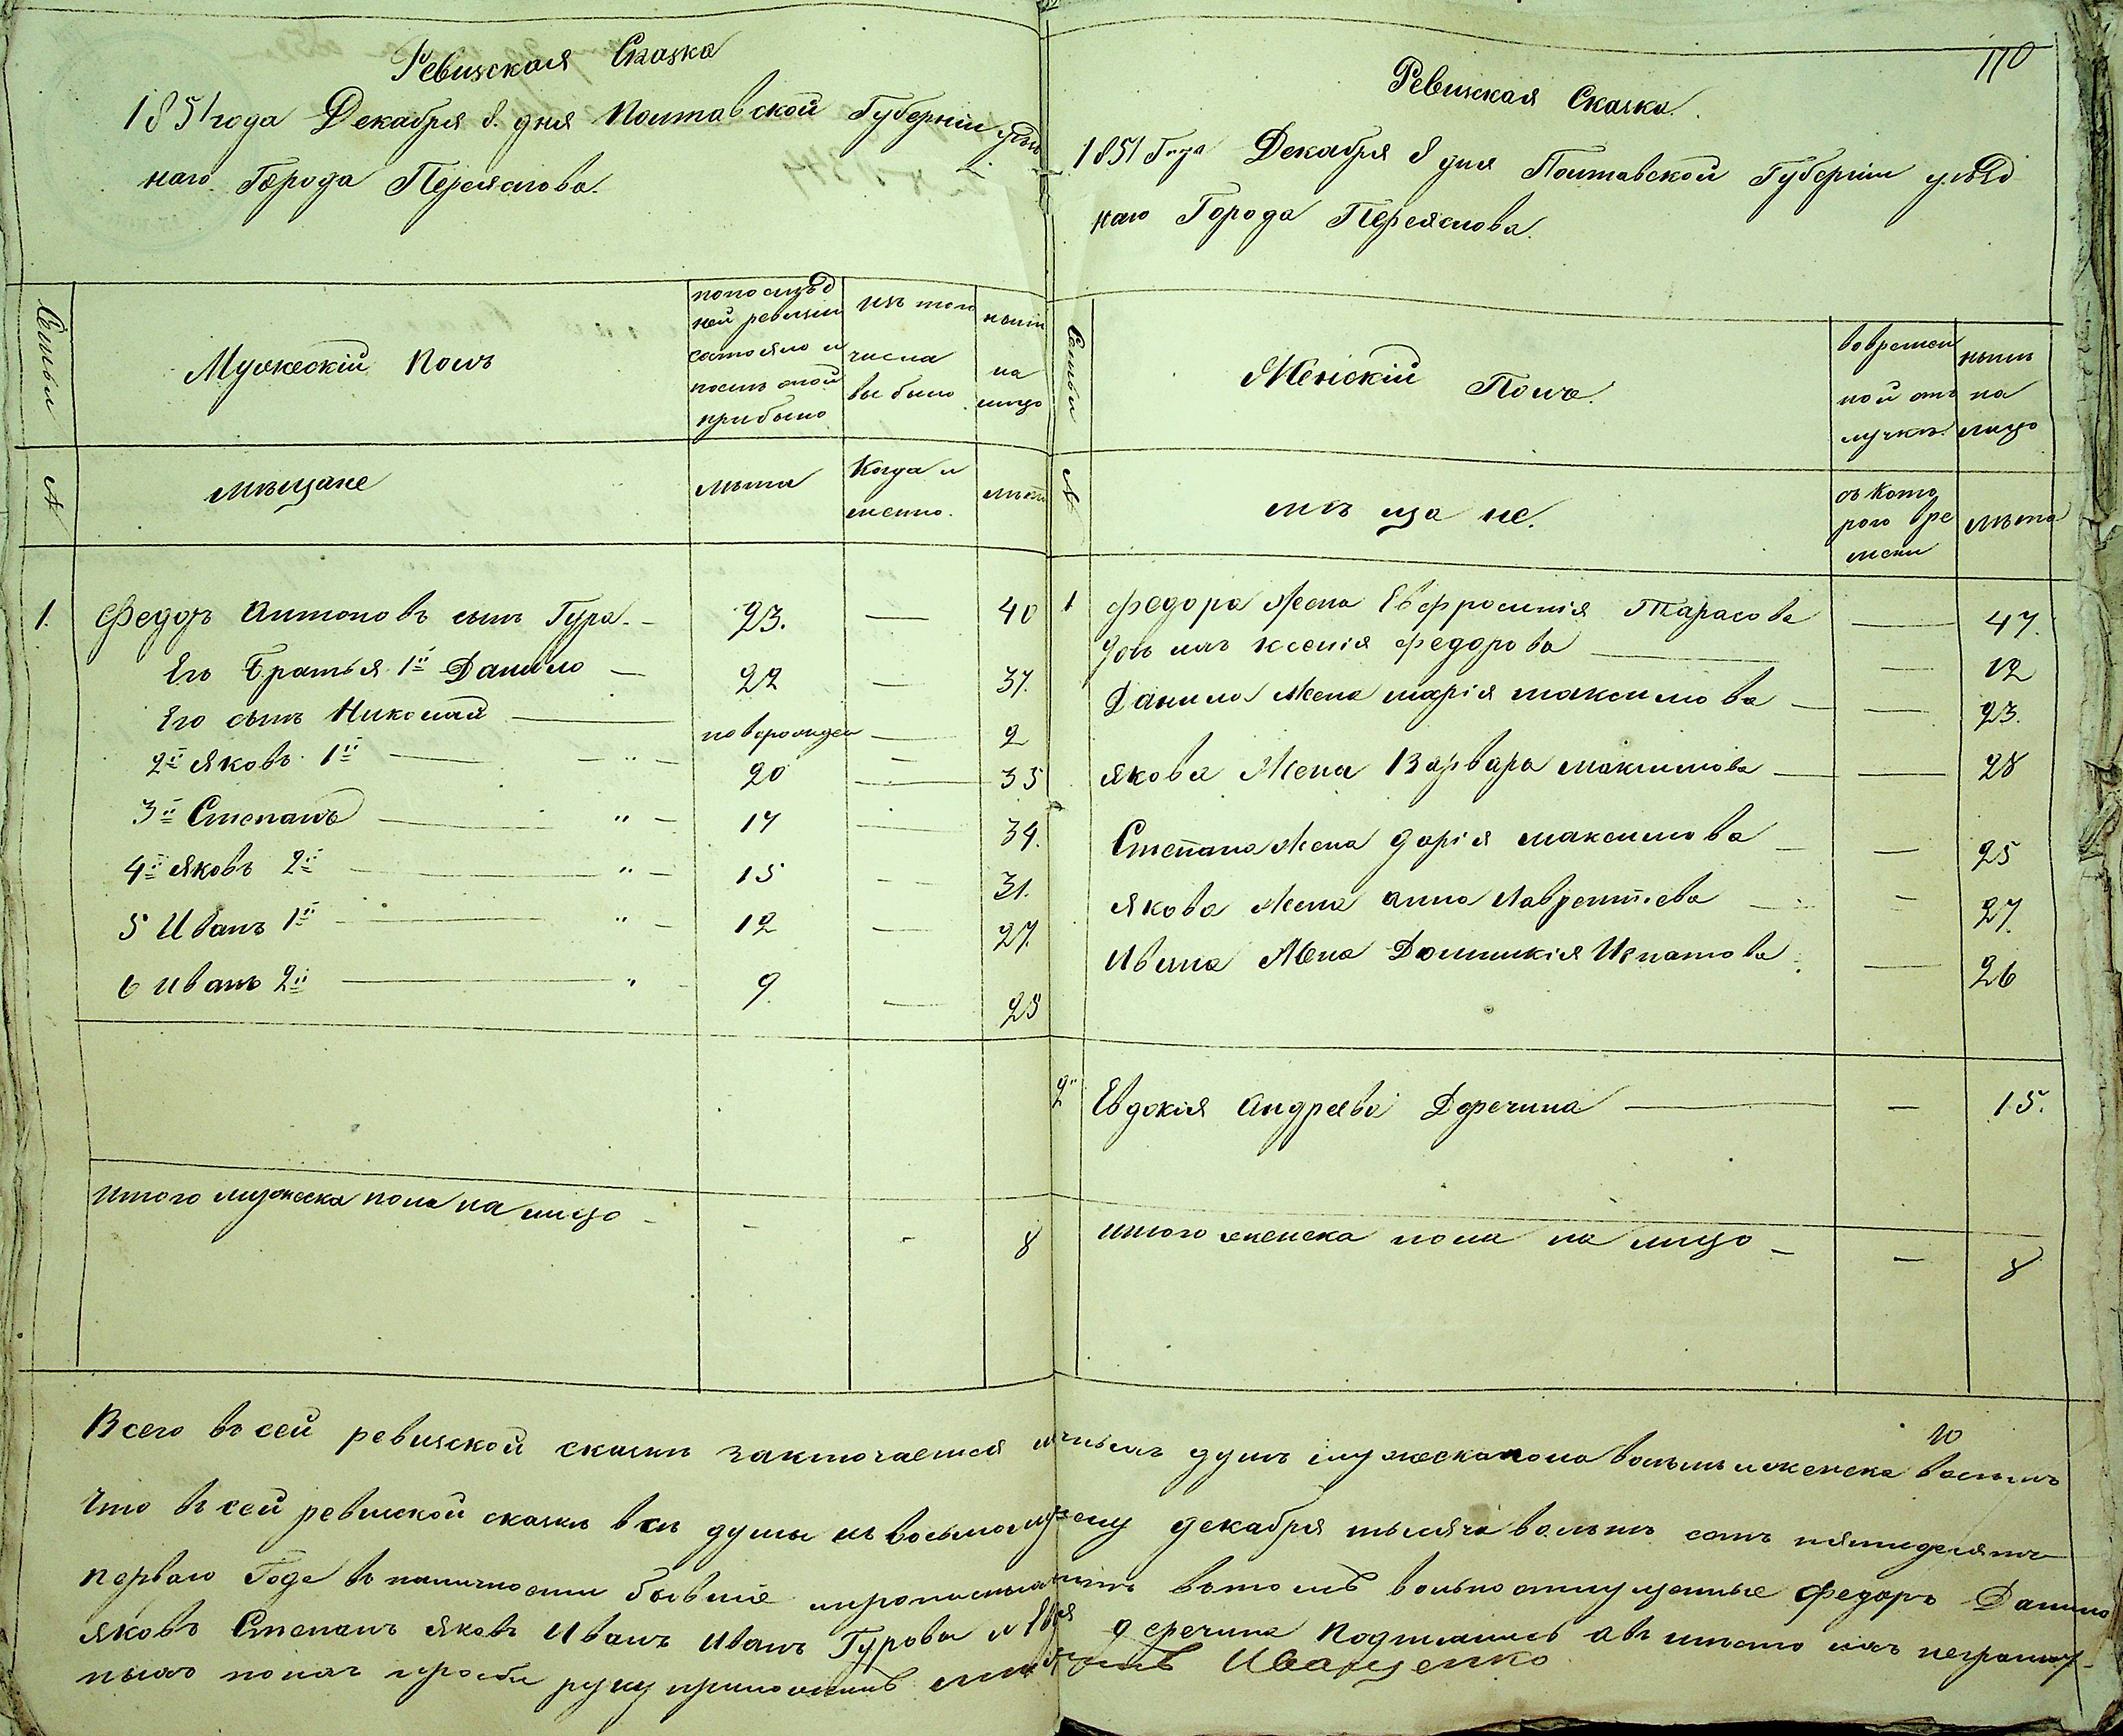 Ревизская Сказка
1851 года Декабря 8. дня Полтавской Губерніи уѣзд
наго Города Переяслова.
Семьи
Мужескій Полъ
по послѣд
ней ревизіи
состояло и
послѣ оной
прибыло
изъ того
числа
выбыло
нынѣ
на
лицо
№
мѣщане
лѣта
Когда и
менно.
лѣта
1. Федоръ Антоновъ сынъ Гура. — 23. — 40
Его Братья 1й Данило — 22 — 37.
Его сынъ Николай — новорожден — 2
2й Яковъ 1й — " — 20 — 35
3й Степанъ — " — 17 — 34.
4й Яковъ 2й — " — 15 — 31.
5 Иванъ 1й — " — 12 — 27.
6 Иванъ 2й — " — 9. — 25
итого мужеска пола на лицо — - - 8
110
Ревизская Сказка.
1851 Года Декабря 8 дня Полтавской Губерніи уѣзд
наго Города Переяслова.
Семьи
Женскій Полъ.
во времен
ной от
лучкѣ.
нынѣ
на
лицо
№
мѣщане.
съ Кото
рого вре
мени
лѣта
1 Федора Жена Евфросинія Тарасова — 47.
Дочь ихъ Ксенія Федорова — 12
Данила Жена Марія Максимова — — 23.
Якова Жена Варвара Максимова — — 28
Степана Жена Дарія Максимова — — 25
Якова Жена Анна Лаврентіева — — 27.
Ивана Жена Домникія Игнатова — 26
2й Евдокія Андреева Деречина — — 15.
итого женска пола на лицо — — 8
Всего въ сей ревизской сказкѣ заключается душъ мужеска пола восьмь и женска восьмь
Что въ сей ревизской сказкѣ всѣ души къ восьмому декабря тысяча восьмъ сотъ пятидесятъ
перваго Года въ наличности бывшіе въ томъ вольноотпущенные Федоръ Данило
Яковъ Степанъ Яковъ Иванъ Иванъ Гуровы и Деречина подписались а вмѣсто ихъ неграмот-
ныхъ по ихъ прозбѣ руку приложилъ Иващенко